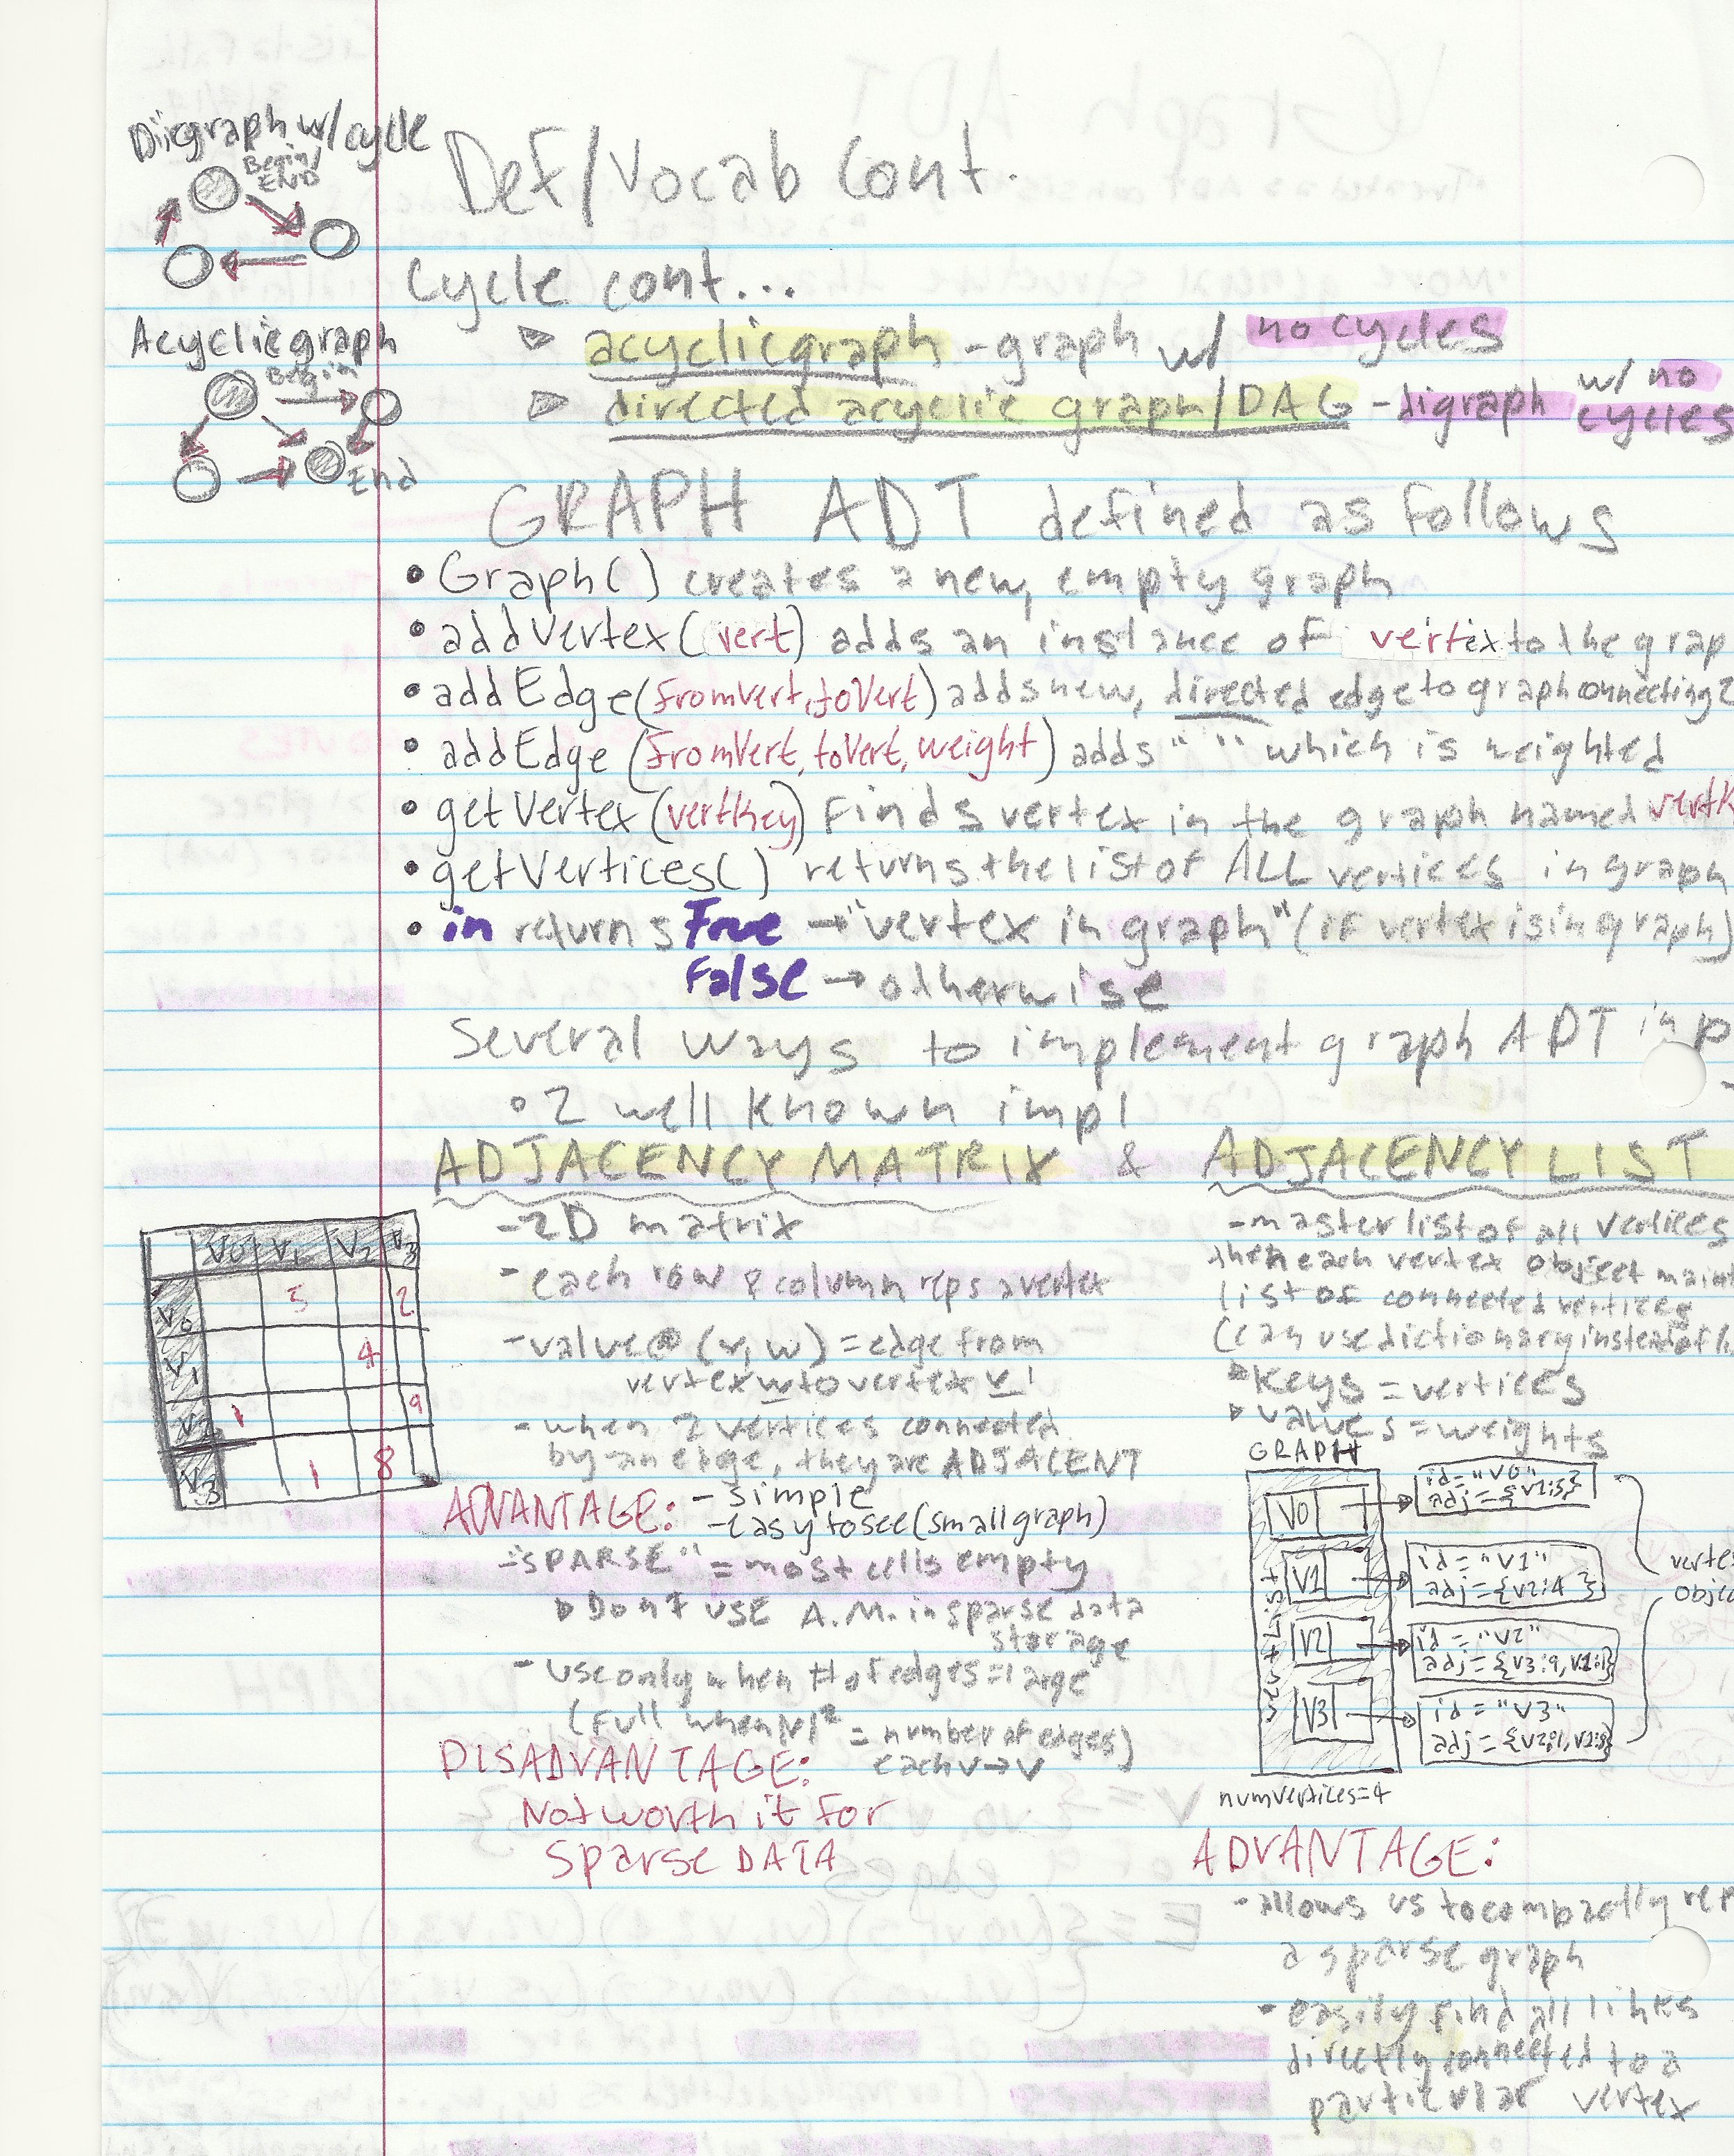 Diigraph w/cycle
Begin/
END
Def/Vocab Cont.
Cycle cont...
Acyclicgraph
Begin
End
acyclicgraph - graph w/ no cycles
directed acyclic graph/DAG - digraph w/ no
cycles
GRAPH ADT defined as follows
• Graph() creates a new, empty graph
• addVertex(vert) adds an instance of vertex to the grap
• addEdge(fromVert, toVert) adds new, directed edge to graph connecting 2
• addEdge (fromVert, toVert, weight) adds " " which is weighted
• getVertex (vertKey) finds vertex in the graph named vertK
• getVertices() returns the list of ALL vertices in graph
• in returns True → "vertex in graph" (if vertex is in graph)
False → otherwise
Several ways to implement graph ADT in p
• 2 well known impl
ADJACENCY MATRIX & ADJACENCY LIST
V0 V1 V2 V3
V0 5 2
V1 4
V2 1 9
V3 1 8
- 2D matrix
- each row & column reps a vertex
- value @ (v, w) = edge from
vertex w to vertex v
- when 2 vertices connected
by an edge, they are ADJACENT
ADVANTAGE: - simple
- easy to see (small graph)
- "SPARSE" = most cells empty
Don't USE A.M. in sparse data
storage
- use only when # of edges = large
(full when |V|² = number of edges)
each v → v
DISADVANTAGE:
Not worth it for
Sparse DATA
- master list of all vertices
then each vertex object main
list of connected vertices
(can use dictionary instead of li
Keys = vertices
values = weights
GRAPH
vertList
V0 id = "V0"
adj = {V1:5}
V1 id = "V1"
adj = {V2:4 }
V2 id = "V2"
adj = {V3:9, V1:1}
V3 id = "V3"
adj = {V2:1, V1:8}
verte
objec
numvertices=4
ADVANTAGE:
- allows us to compactly rep
a sparse graph
- easily find all links
directly connected to a
particular vertex